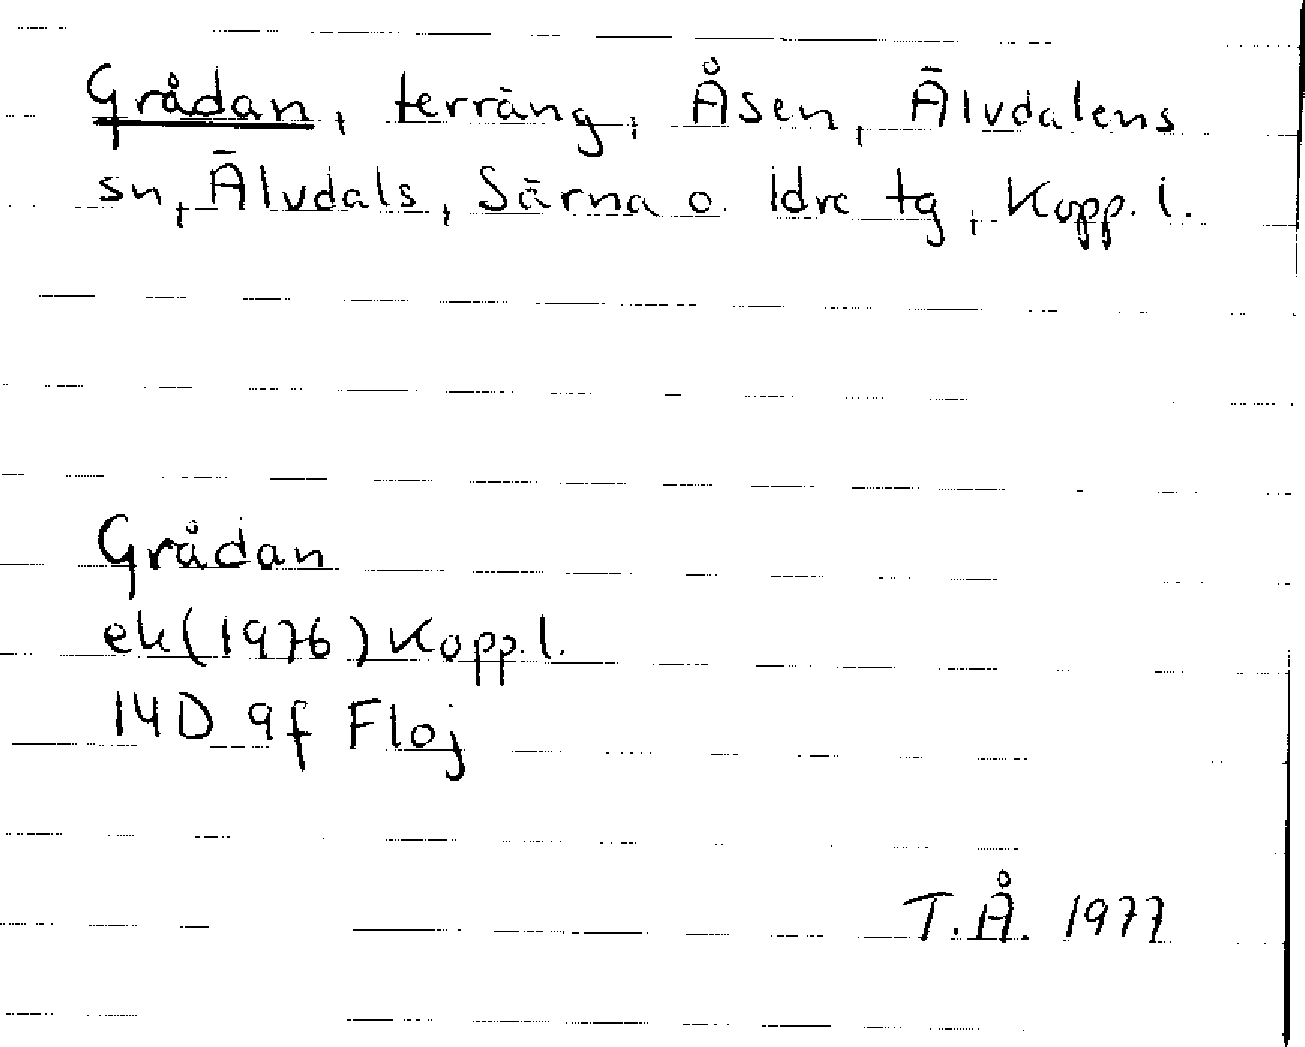 Grådan, terräng, Åsen, Älvdalens
sn, Älvdals, Särna o. Idre tg, Kopp. l.
Grådan
ek (1976) Kopp. l.
14D 9f Floj
T.Å. 1977